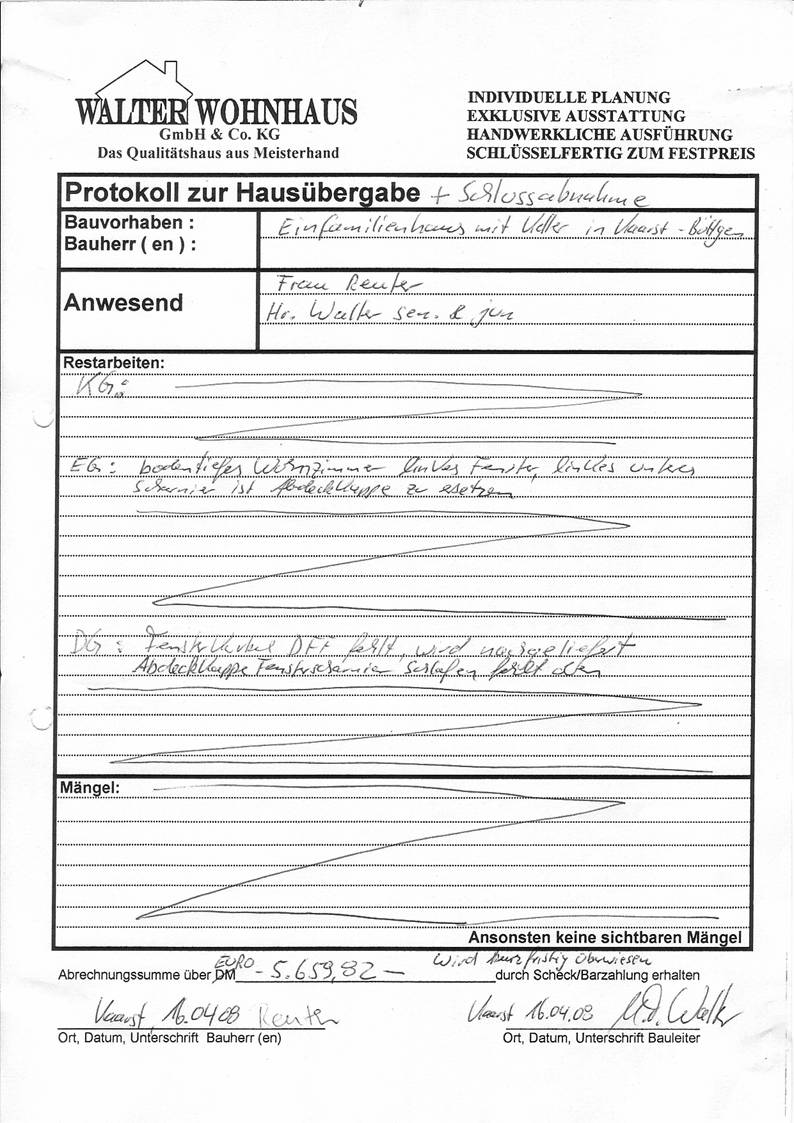 WALTER WOHNHAUS
GmbH & Co. KG
Das Qualitätshaus aus Meisterhand
INDIVIDUELLE PLANUNG
EXKLUSIVE AUSSTATTUNG
HANDWERKLICHE AUSFÜHRUNG
SCHLÜSSELFERTIG ZUM FESTPREIS
Protokoll zur Hausübergabe + Schlussabnahme
Bauvorhaben :
Bauherr ( en ) :
Einfamilienhaus mit Keller in Kaarst - Büttgen
Anwesend
Frau Reuter
Hr. Walter sen. & jun
Restarbeiten:
KG:
EG: bodentiefes Wohnzimmer linkes Fenster, linkes unteres
Scharnier ist Abdeckkappe zu esetzen
DG: Fensterkurbel DFF fehlt, wird nachgeliefert
Abdeckkappe Fensterscharnier Schlafen fehlt oben
Mängel:
Ansonsten keine sichtbaren Mängel
EURO wird kurzfristig überwiesen
Abrechnungssumme über DM - 5.659,82 - durch Scheck/Barzahlung erhalten
Kaarst 16.04.08 Reuter
Kaarst 16.04.08 Walter
Ort, Datum, Unterschrift Bauherr (en)
Ort, Datum, Unterschrift Bauleiter